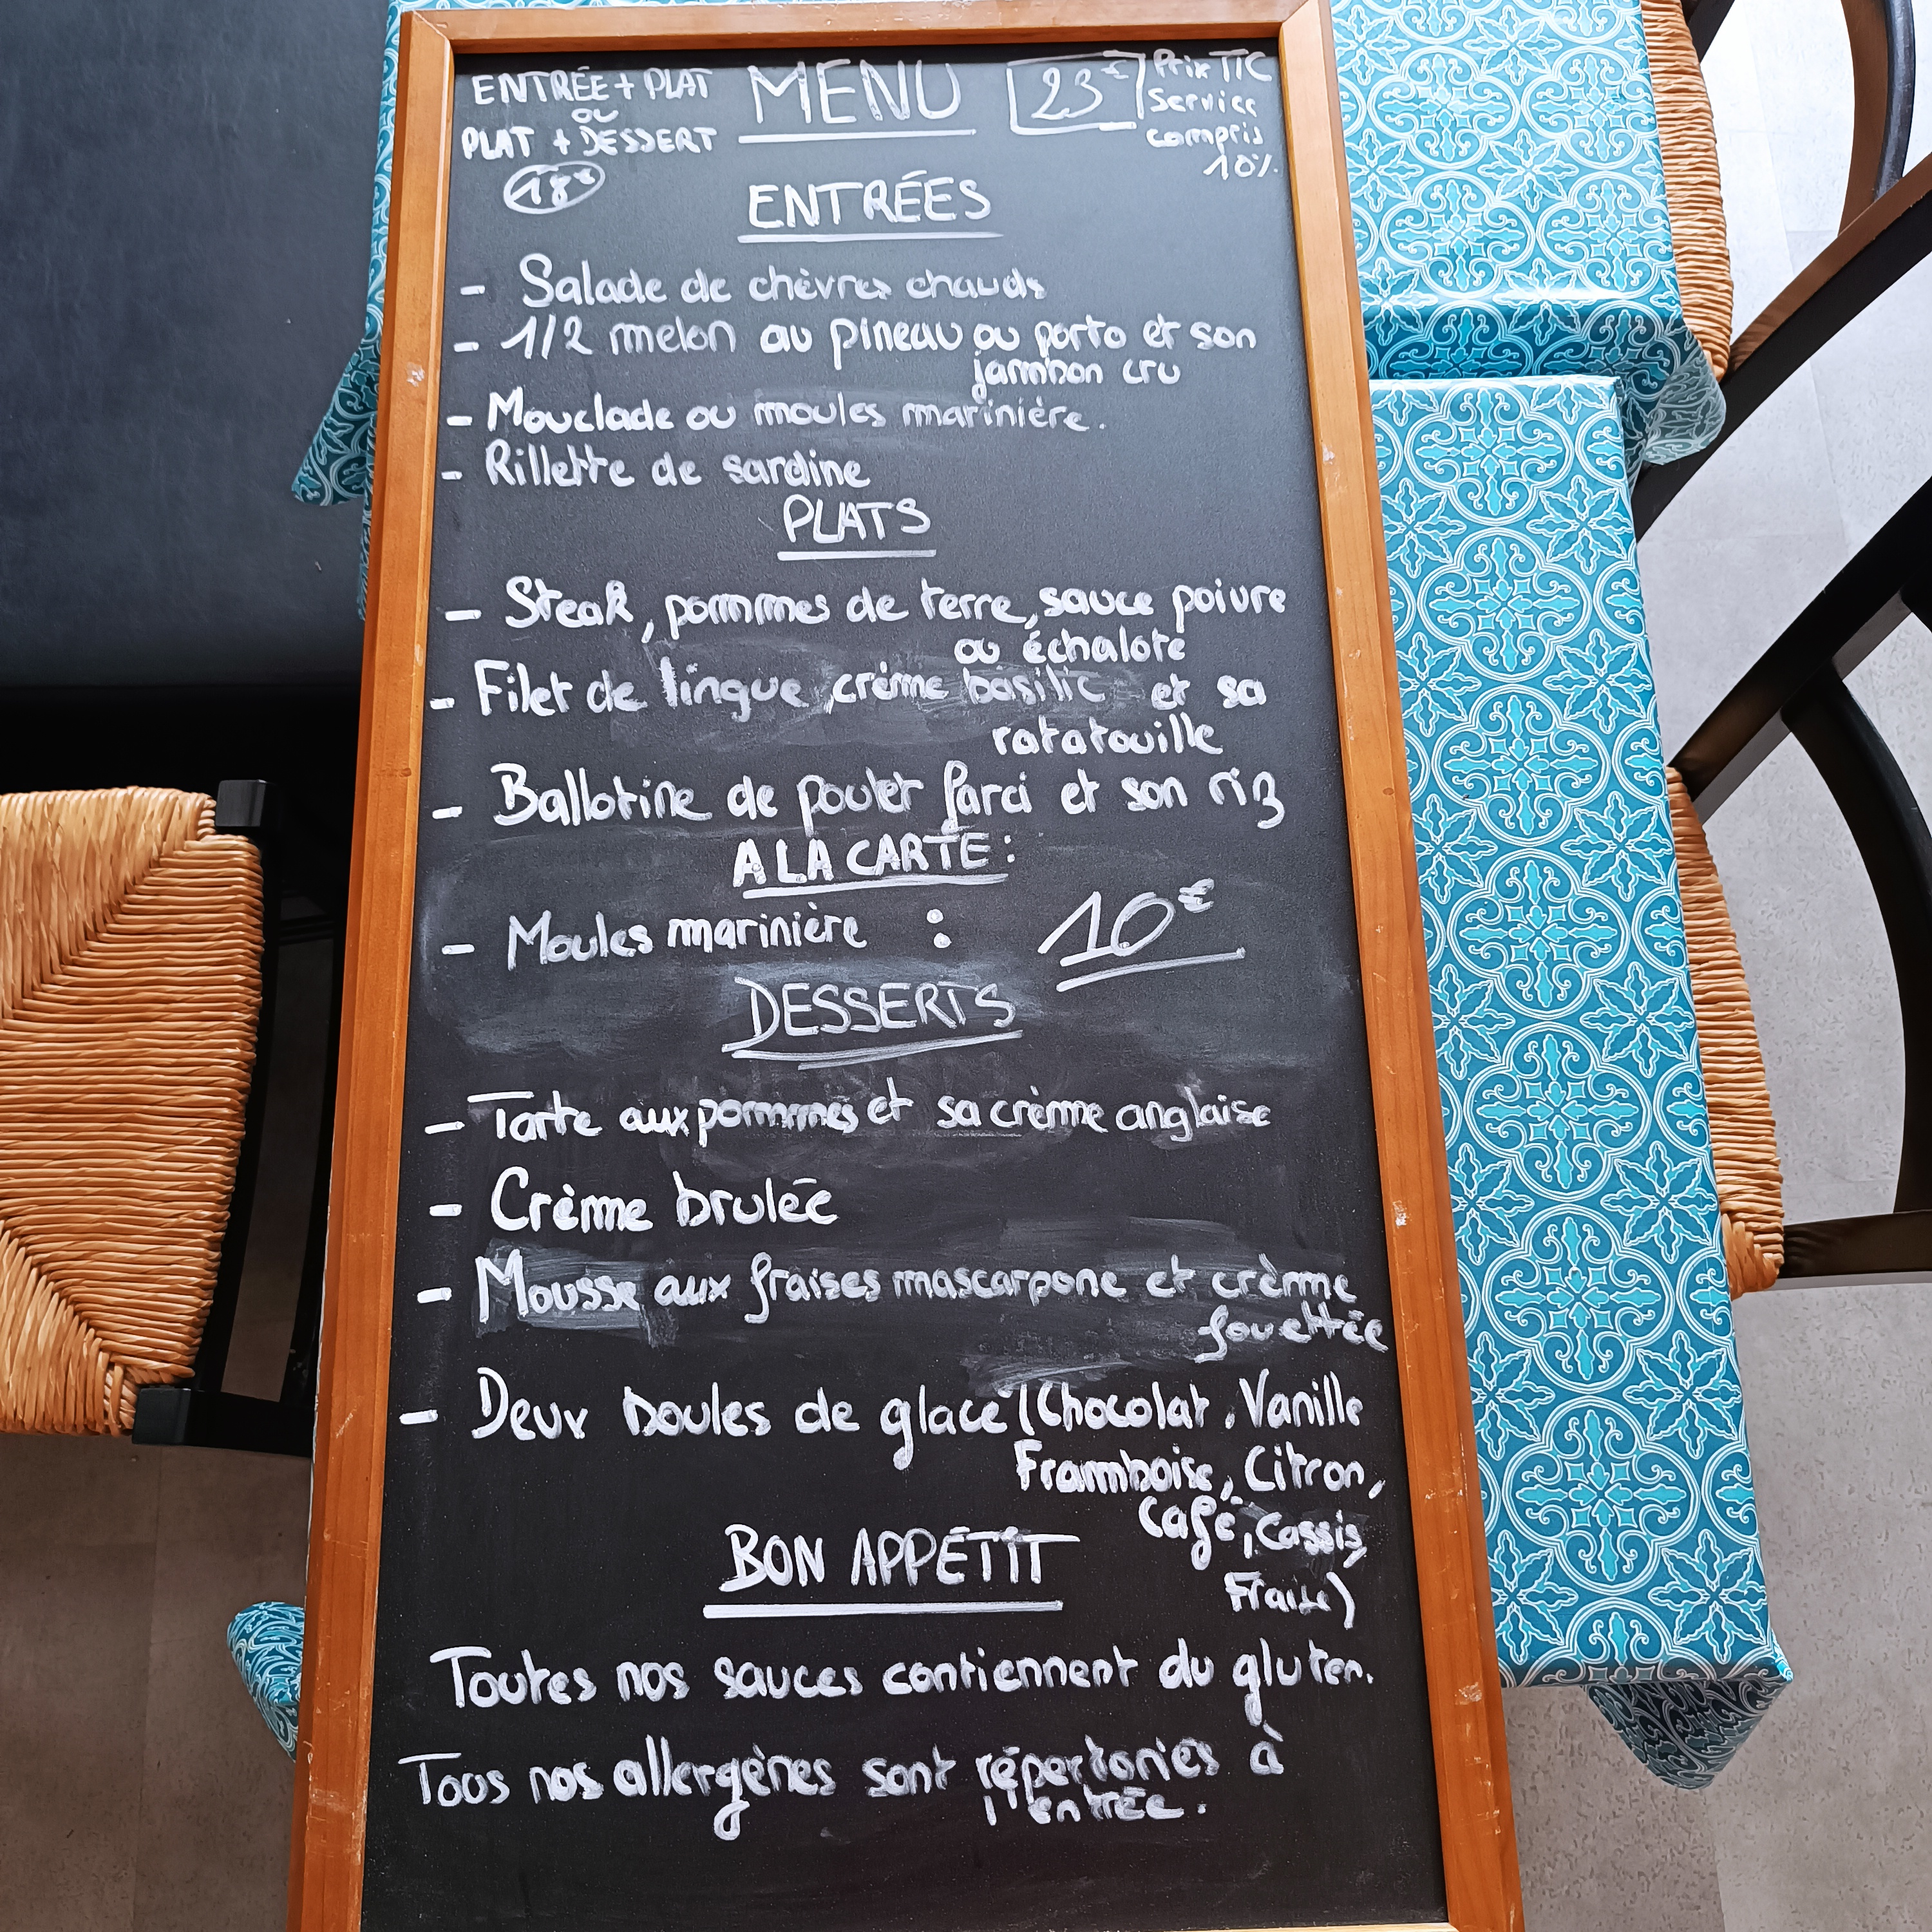 ENTRÉE + PLAT
OU
PLAT + DESSERT
18€
MENU
23€
Prix TTC
Service
compris
10%.
ENTRÉES
- Salade de chèvres chauds
- 1/2 melon au pineau ou porto et son
jambon cru
- Mouclade ou moules marinière.
- Rillette de sardine
PLATS
- Steak, pommes de terre, sauce poivre
ou échalote
- Filet de lingue, crème basilic et sa
ratatouille
- Ballotine de poulet farci et son riz
A LA CARTE :
- Moules marinière : 10€
DESSERTS
- Tarte aux pommes et sa crème anglaise
- Crème brulée
- Mousse aux fraises mascarpone et crème
fouettée
- Deux boules de glace (Chocolat, Vanille
Framboise, Citron,
Café, Cassis,
Fraise)
BON APPÉTIT
Toutes nos sauces contiennent du gluten.
Tous nos allergènes sont répertoriés à
l'entrée.